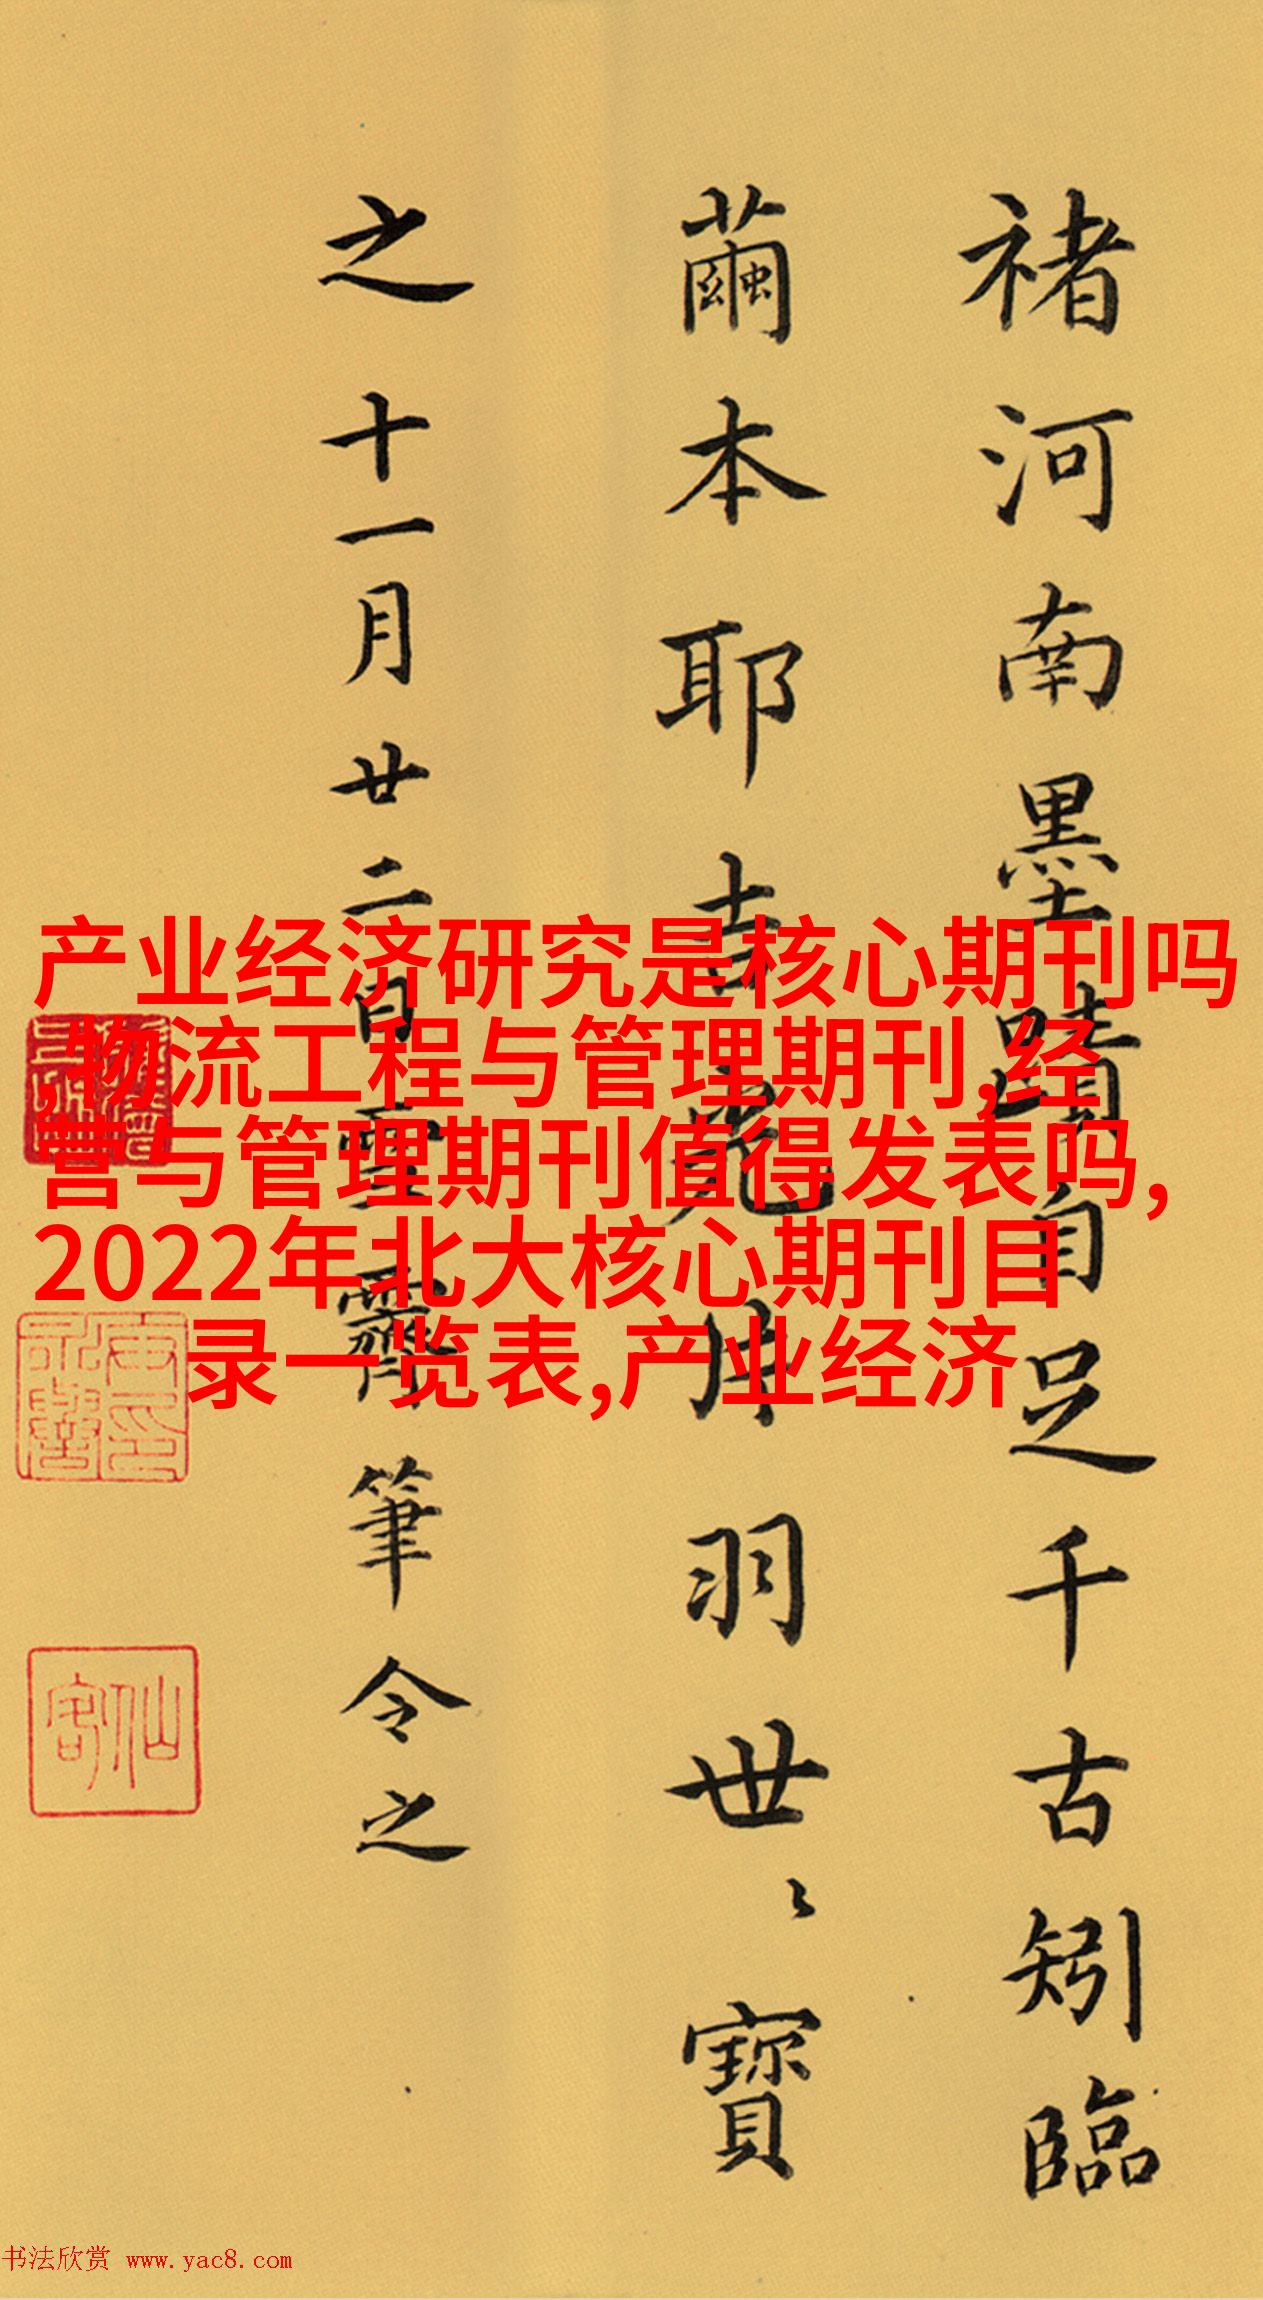 褚河南墨蹟自足千古矧臨
繭本耶吉光片羽世〻寶
之十一月廿二日雪齋筆令之
产业经济研究是核心期刊吗
,物流工程与管理期刊,经
营与管理期刊值得发表吗,
2022年北大核心期刊目
录一览表,产业经济
仙客
书法欣赏 www.yac8.com